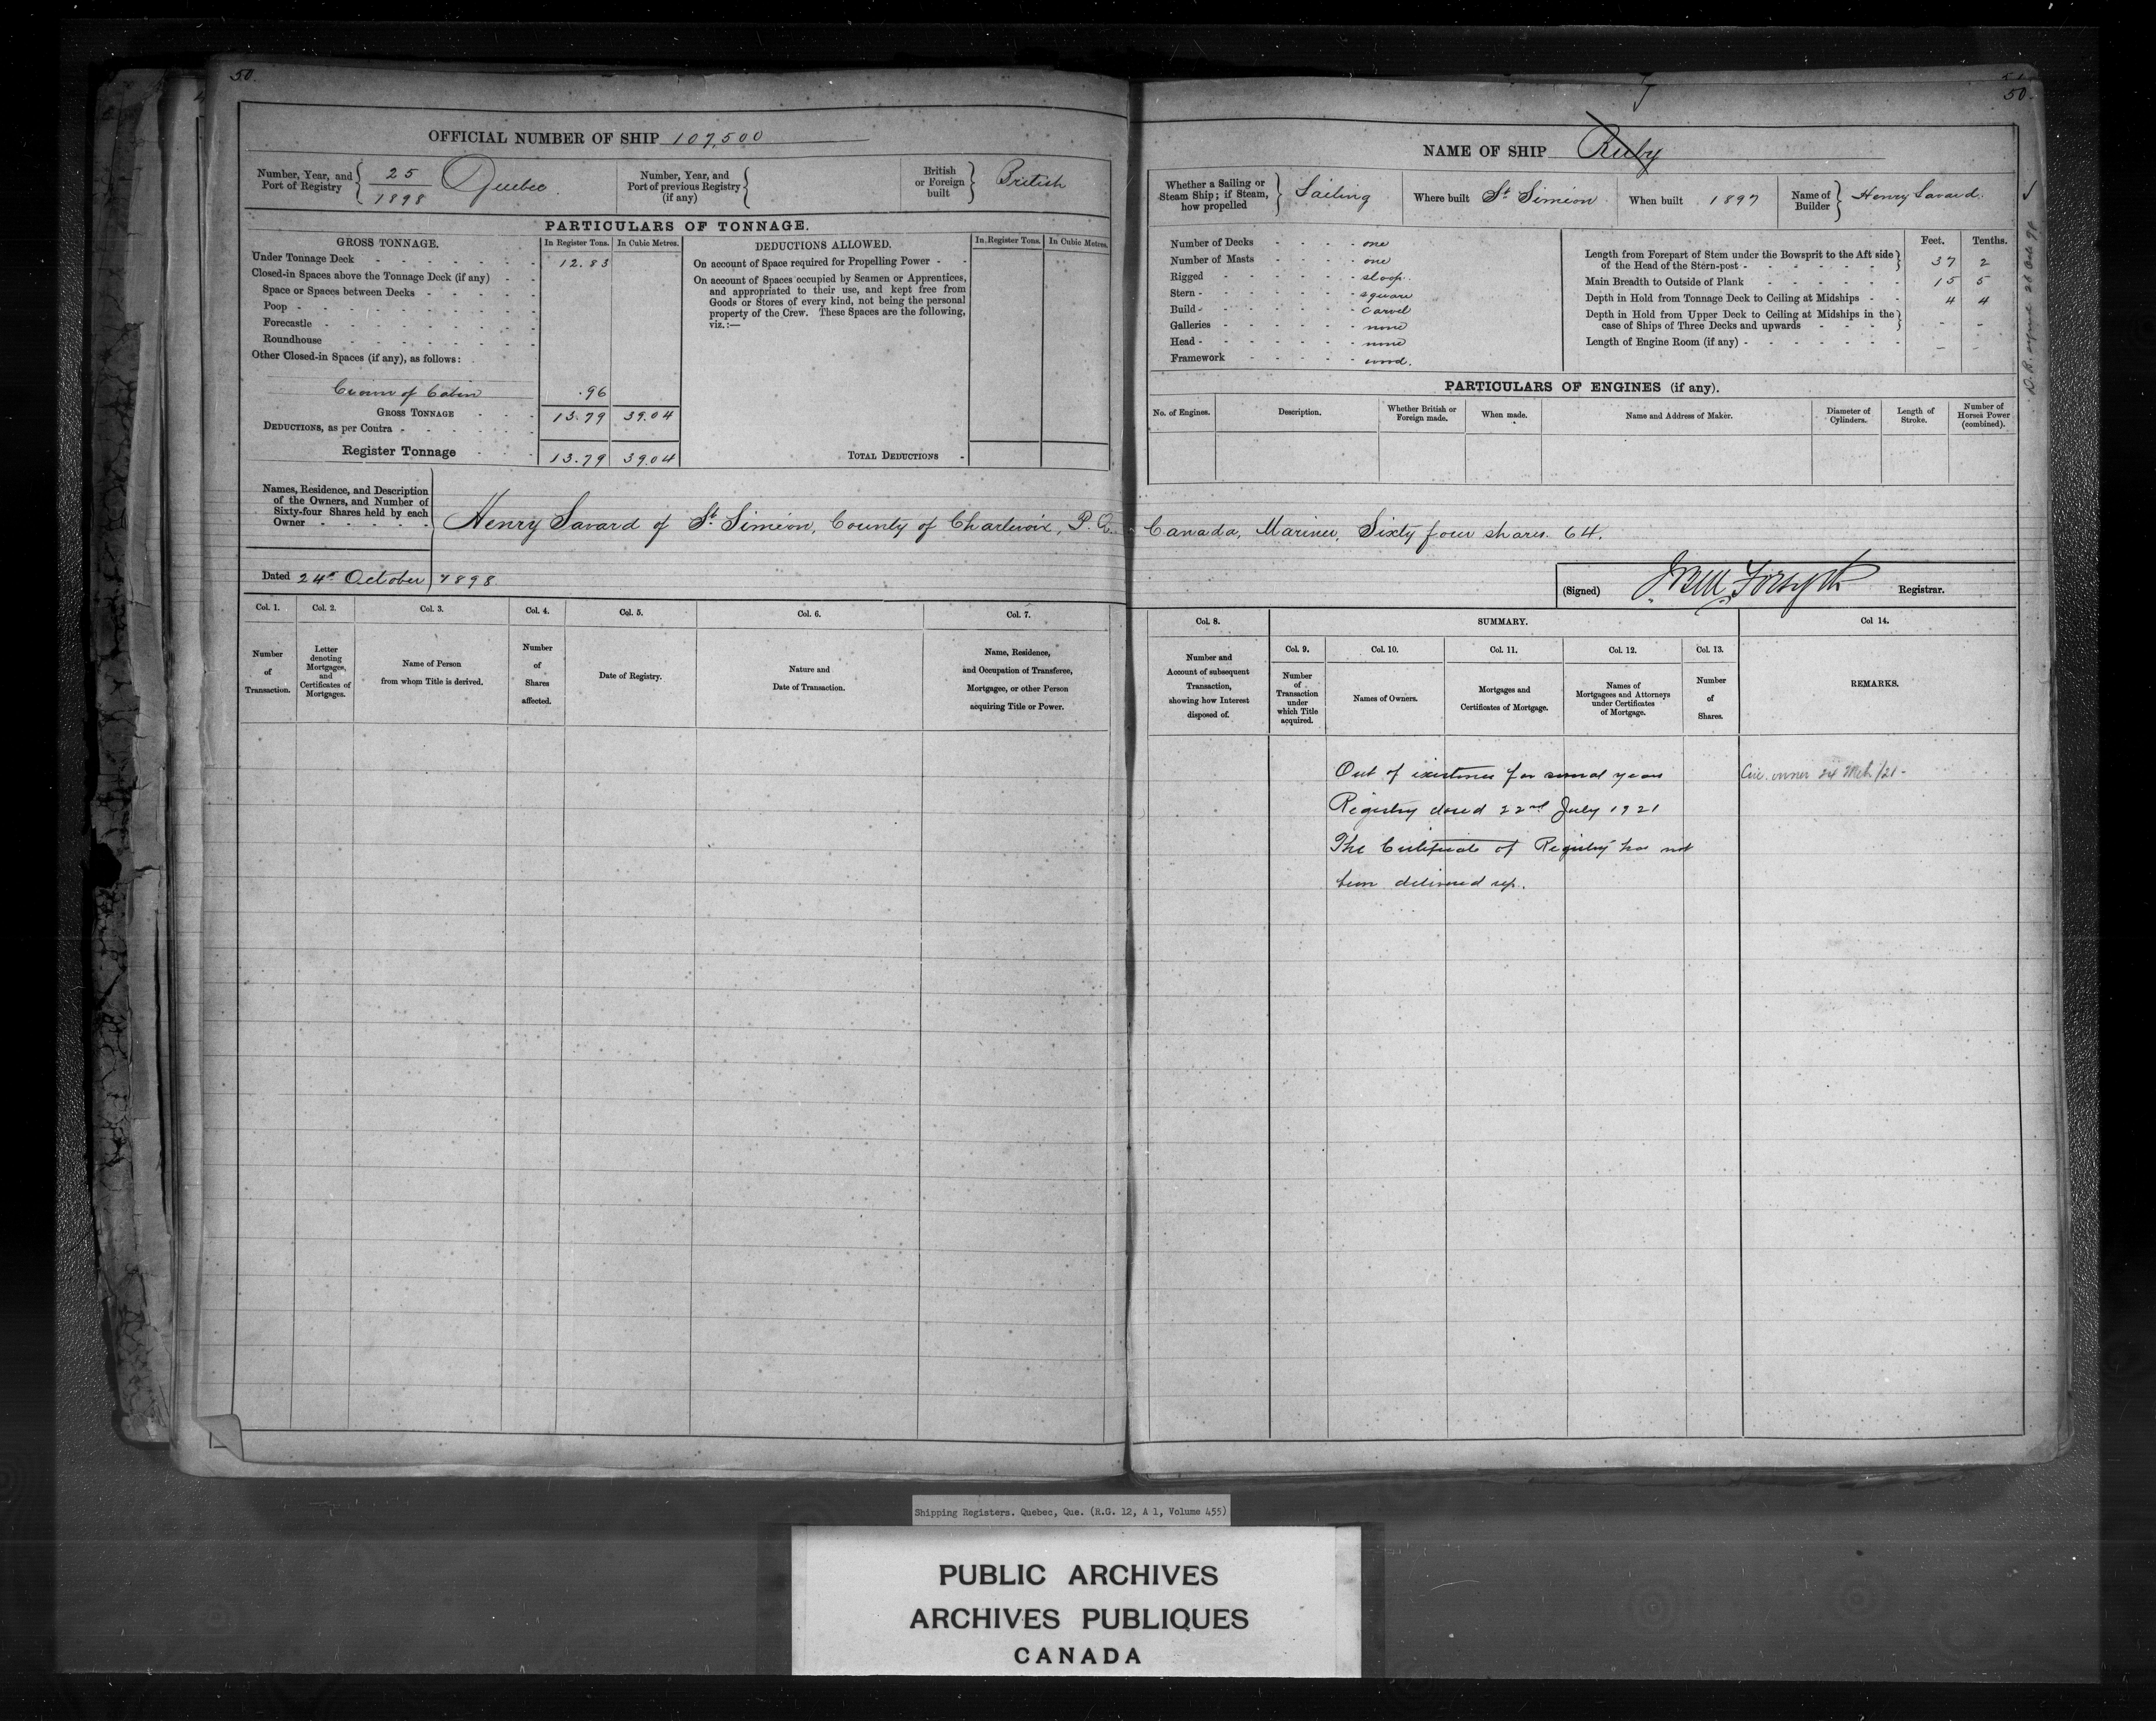 50.
OFFICIAL NUMBER OF SHIP 107,500
Number, Year, and Port of Registry 25 1898 Quebec.
Number, Year, and Port of previous Registry (if any)
British or Foreign built British
PARTICULARS OF TONNAGE.
GROSS TONNAGE. In Register Tons. In Cubic Metres.
Under Tonnage Deck 12.83
Closed-in Spaces above the Tonnage Deck (if any)
Space or Spaces between Decks
Poop
Forecastle
Roundhouse
Other Closed-in Spaces (if any), as follows:
Crown of Cabin .96
GROSS TONNAGE 13.79 39.04
DEDUCTIONS, as per Contra
Register Tonnage 13.79 39.04
DEDUCTIONS ALLOWED. In Register Tons. In Cubic Metres.
On account of Space required for Propelling Power
On account of Spaces occupied by Seamen or Apprentices,
and appropriated to their use, and kept free from
Goods or Stores of every kind, not being the personal
property of the Crew. These Spaces are the following,
viz.:—
TOTAL DEDUCTIONS
Names, Residence, and Description
of the Owners, and Number of
Sixty-four Shares held by each
Owner
Henry Savard of St. Siméon, County of Charlevoix, P.Q.
Dated 24th October 1898
Col. 1. Col. 2. Col. 3. Col. 4. Col. 5. Col. 6. Col. 7.
Number of Transaction.
Letter denoting Mortgages, and Certificates of Mortgages.
Name of Person from whom Title is derived.
Number of Shares affected.
Date of Registry.
Nature and Date of Transaction.
Name, Residence, and Occupation of Transferee, Mortgagee, or other Person acquiring Title or Power.
50
NAME OF SHIP Ruby
Whether a Sailing or Steam Ship; if Steam, how propelled Sailing
Where built St Siméon
When built 1897
Name of Builder Henry Savard.
Number of Decks one
Number of Masts one
Rigged sloop.
Stern square
Build carvel
Galleries none
Head none
Framework wood.
Feet. Tenths.
Length from Forepart of Stem under the Bowsprit to the Aft side of the Head of the Stern-post 37 2
Main Breadth to Outside of Plank 15 5
Depth in Hold from Tonnage Deck to Ceiling at Midships 4 4
Depth in Hold from Upper Deck to Ceiling at Midships in the case of Ships of Three Decks and upwards - -
Length of Engine Room (if any) - -
PARTICULARS OF ENGINES (if any).
No. of Engines. Description. Whether British or Foreign made. When made. Name and Address of Maker. Diameter of Cylinders. Length of Stroke. Number of Horses Power (combined).
Canada, Mariner, Sixty four shares. 64.
(Signed) Forsyth Registrar.
Col. 8. SUMMARY. Col 14.
Col. 9. Col. 10. Col. 11. Col. 12. Col. 13.
Number and Account of subsequent Transaction, showing how Interest disposed of.
Number of Transaction under which Title acquired.
Names of Owners.
Mortgages and Certificates of Mortgage.
Names of Mortgagees and Attorneys under Certificates of Mortgage.
Number of Shares.
REMARKS.
Out of existence for several years
owner 24 Mch/21-
Registry closed 22nd July 1921
The Certificate of Registry has not
been delivered up.
Shipping Registers. Quebec, Que. (R.G. 12, A 1, Volume 455)
PUBLIC ARCHIVES
ARCHIVES PUBLIQUES
CANADA